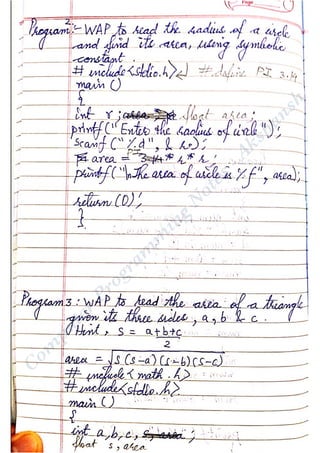 Page
Program 2:- WAP to read the radius of a circle
and find its area, using symbolic
constant.
# include<stdio.h> # define PI 3.14
main ()
{
int r; float area;
printf("Enter the radius of circle");
scanf("%d", & r);
area = PI * r * r;
printf("\nThe area of circle is %f", area);
return (0);
}
Program 3: WAP to read the area of a triangle
given its three sides, a, b & c.
Hint, s = a+b+c
2
area = √s(s-a)(s-b)(s-c)
# include< math.h>
# include<stdio.h>
main ()
{
int a, b, c, s, area;
float s, area